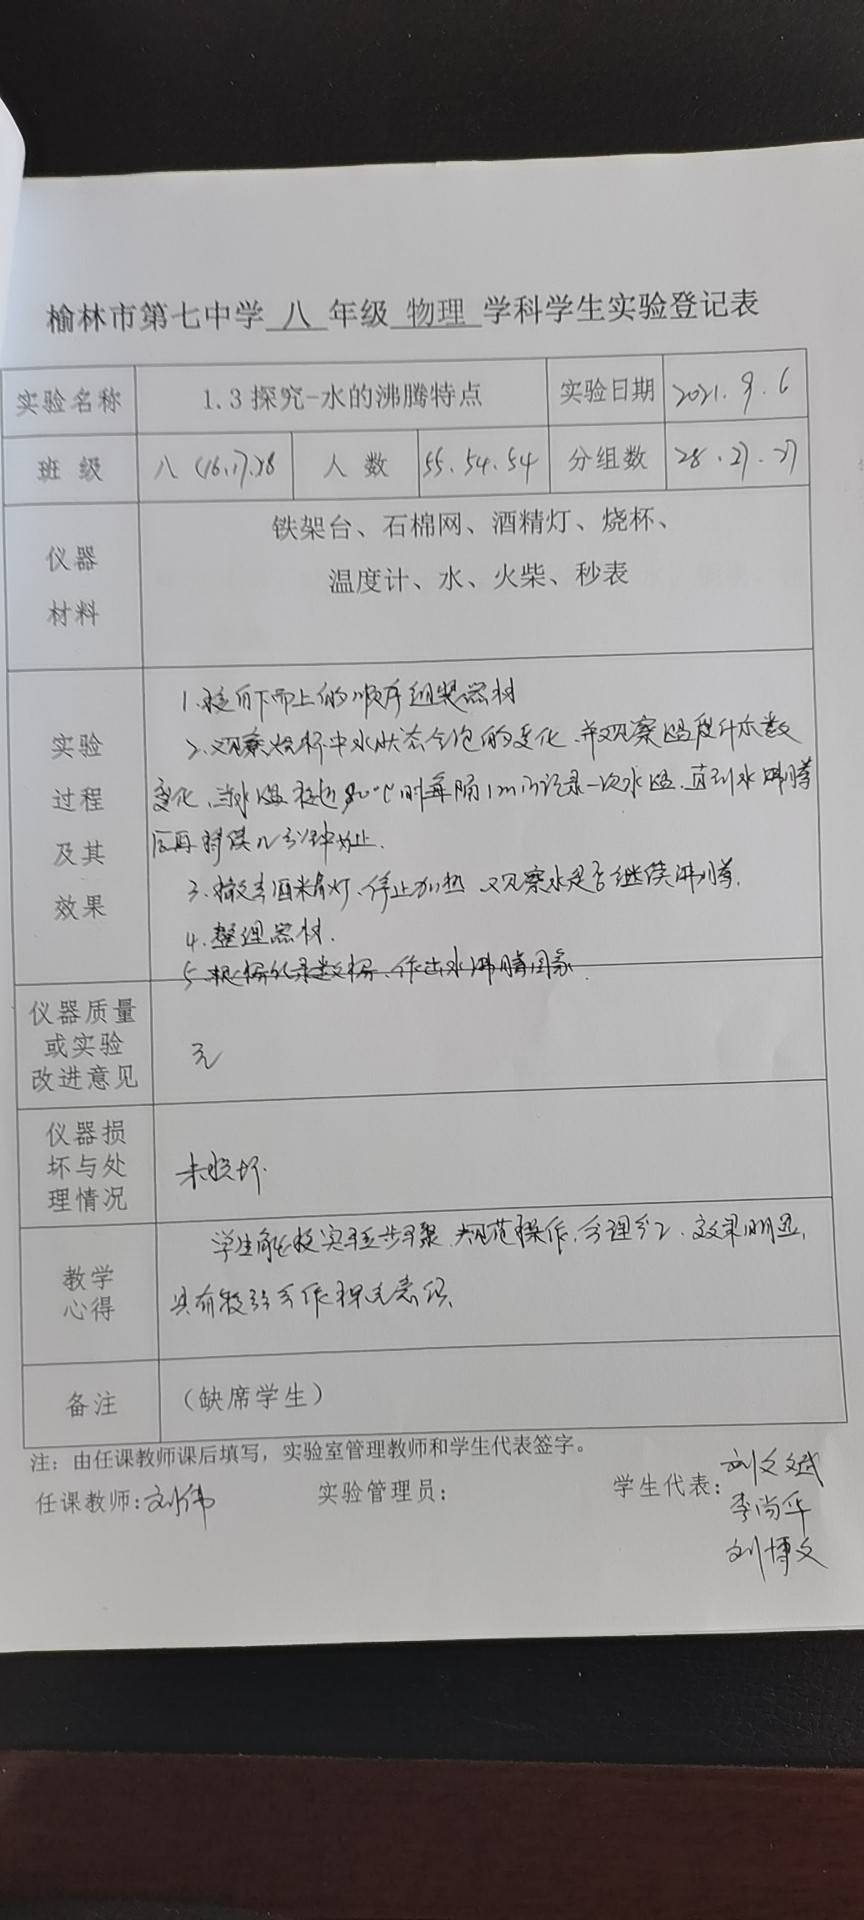 榆林市第七中学 八 年级 物理 学科学生实验登记表
实验名称 1.3探究-水的沸腾特点 实验日期 2021.9.6
班 级 八(16.17.18 人 数 55.54.54 分组数 28.27.27
仪器
材料
铁架台、石棉网、酒精灯、烧杯、
温度计、水、火柴、秒表
实验
过程
及其
效果
1.按自下而上的顺序组装器材
2.观察烧杯中水状态气泡的变化.并观察温度计示数
变化.当水温接近90℃时每隔1min记录一次水温.直到水沸腾
后再持续几分钟为止.
3.撤去酒精灯.停止加热 观察水是否继续沸腾.
4.整理器材.
5.根据记录数据.作出水沸腾图象.
仪器质量
或实验
改进意见
无
仪器损
坏与处
理情况
未损坏.
教学
心得
学生能按实验步骤.规范操作.合理分工.效果明显,
具有较强合作探究意识
备注 （缺席学生）
注：由任课教师课后填写，实验室管理教师和学生代表签字。
任课教师: 刘伟 实验管理员： 学生代表: 刘文斌
李尚华
刘博文